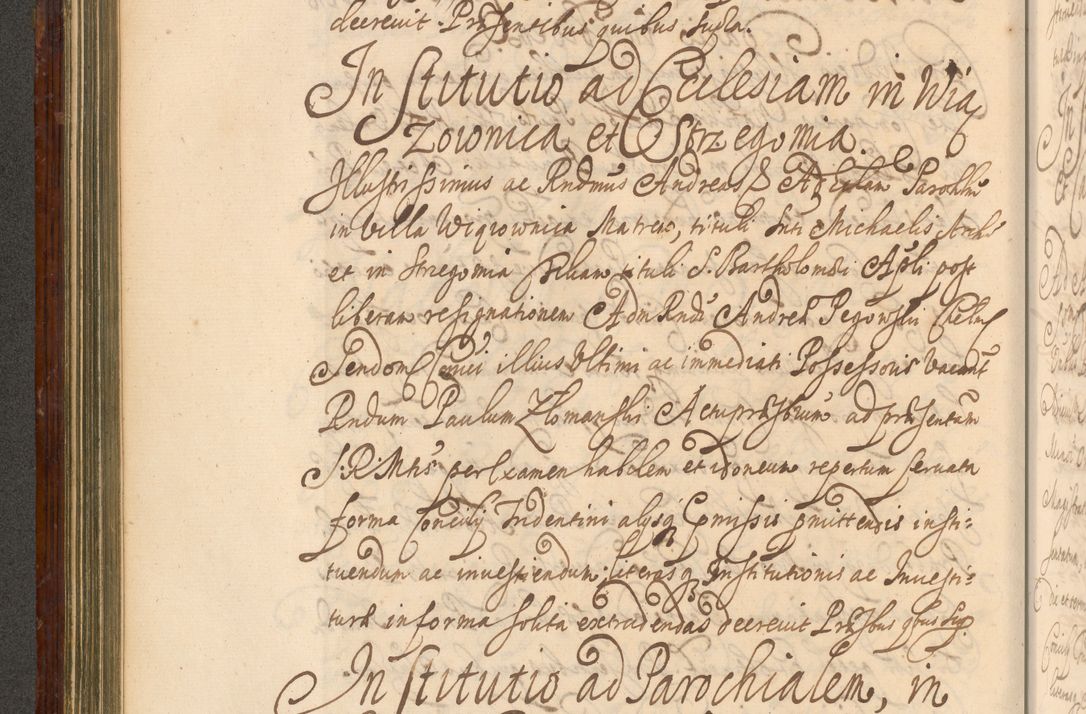 decrevit Præsentibus quibus supra.
Institutio ad Ecclesiam in Wią
zownica et Strzegomia.
Illustrissimus ac Rndmus Andreas S. Ad Eccliam Parochlem
in Villa Wiązownica Matrem, tituli Snti Michaelis Arch:
et in Strzegomia filiam tituli S. Bartholomæi Apsli post
liberam resignationem Adm Rndi Andreæ Pegowski
Sendom illius Ultimi ac immediati Possessoris Vacant
Rndum Paulum Zlomanski Actu præsbrum ad præsentam
S: R: Mtis per Examen habilem et idoneum repertum servata
forma Concilij Tridentini alijsq omissis omittendis insti:
tuendum ac investiendum, literasq Institutionis ac Investi:
turæ in forma solita extradendas decrevit Præsbus qbus sup
Institutio ad Parochialem, in